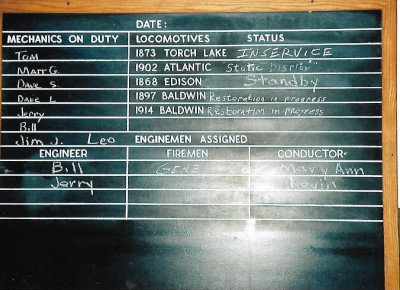 DATE:
MECHANICS ON DUTY LOCOMOTIVES STATUS
Tom 1873 TORCH LAKE INSERVICE
Matt G. 1902 ATLANTIC Static Display
Dave S. 1868 EDISON Standby
Dave L 1897 BALDWIN Restoration in progress
Jerry 1914 BALDWIN Restoration in progress
Bill
Jim J. Leo ENGINEMEN ASSIGNED
ENGINEER FIREMEN CONDUCTOR
Bill GENE Mary Ann
Jerry Kevin